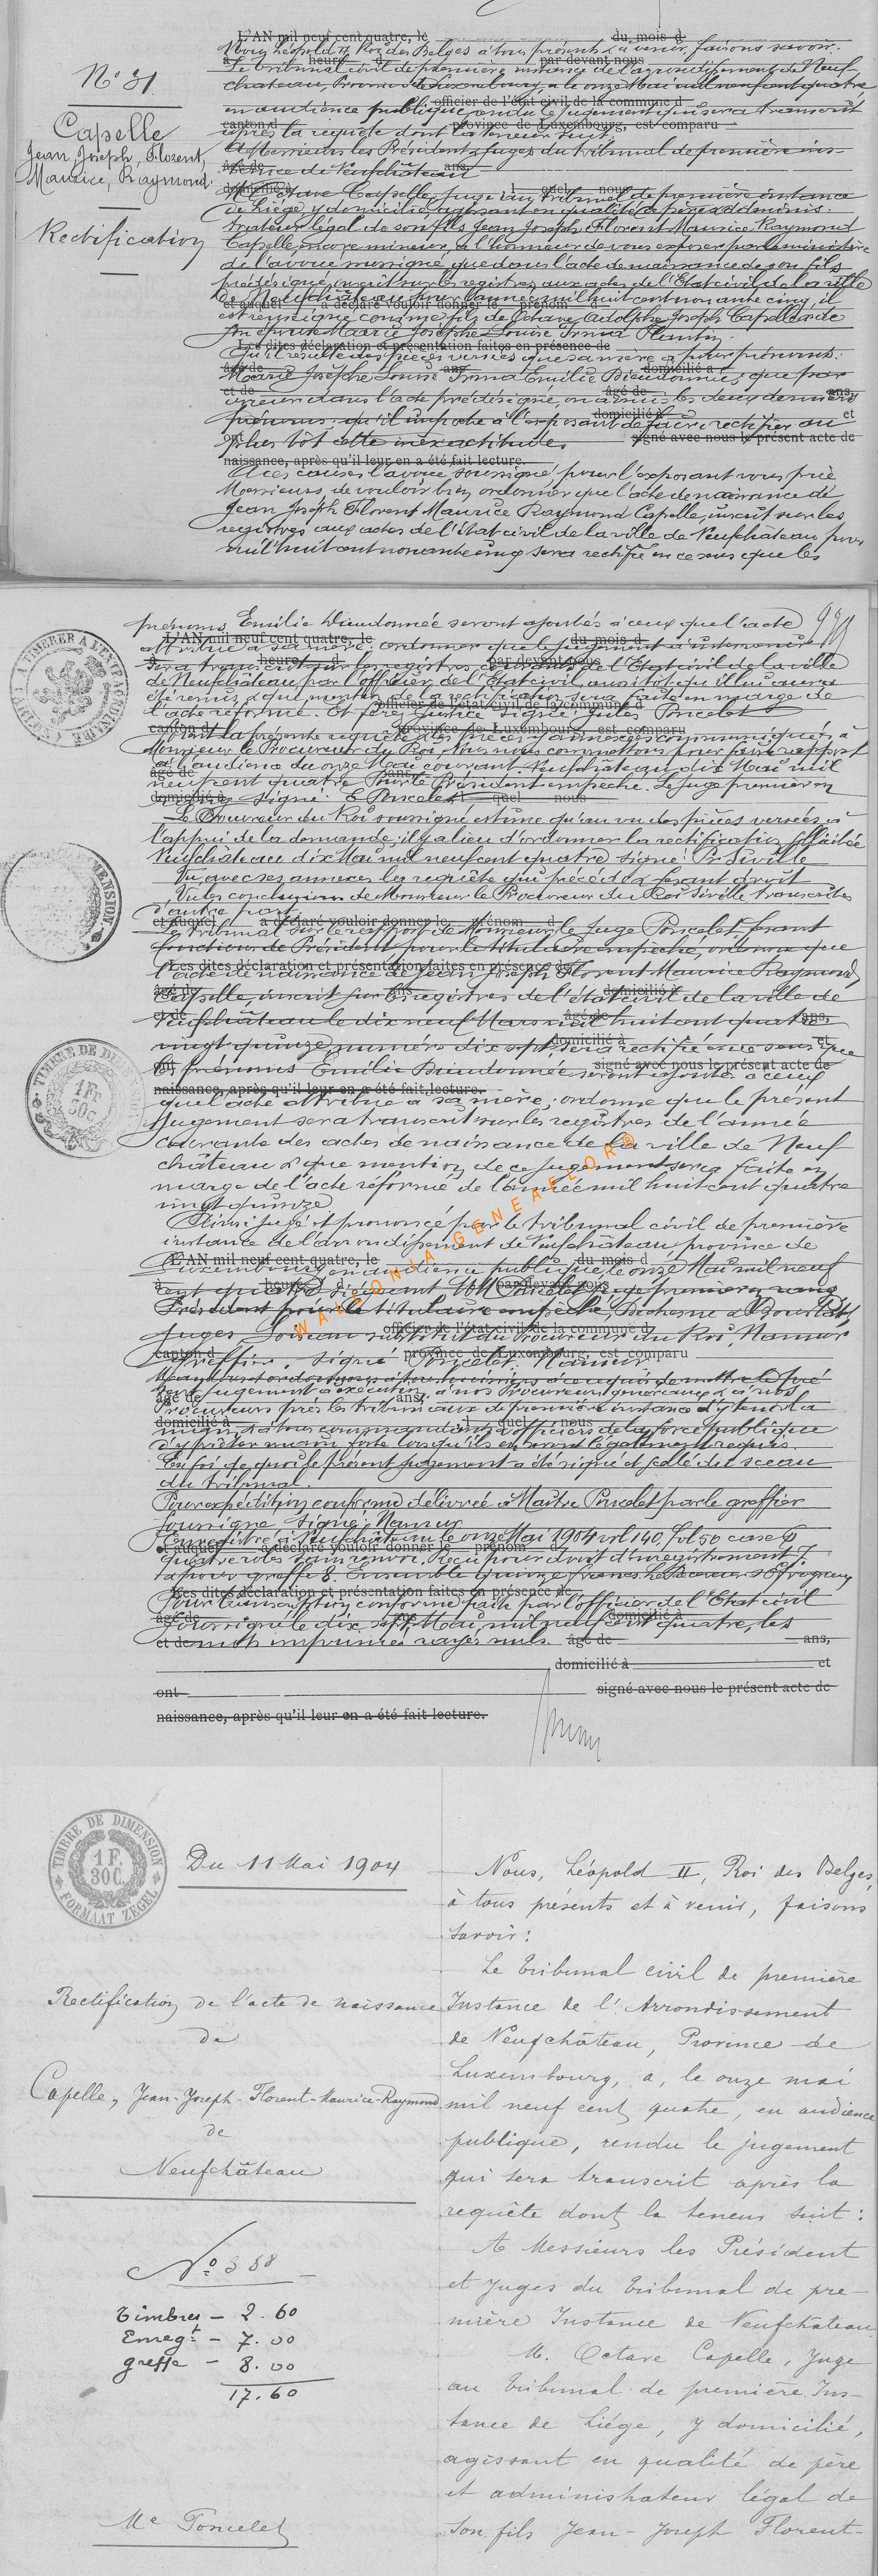 N° 31.
Capelle
Jean Joseph, Florent,
Maurice, Raymond.
Rectification
L'AN mil neuf cent quatre, le du mois d
Nous Léopold II, Roi des Belges à tous présents & à venir, faisons savoir:
à heure d par devant nous
Le tribunal civil de première instance de l'arrondissement de Neuf
château, Province de Luxembourg, a le onze Mai mil neuf cent quatre
officier de l'état civil de la commune d
en audience publique rendu le jugement qui sera transcrit
canton d province de Luxembourg, est comparu
après la requête dont la teneur suit:
A Messieurs les Président & Juges du tribunal de première ins-
âgé de ans
tance de Neufchâteau
domicilié à l quel nous
M. Octave Capelle, juge au tribunal de première instance
de Liége, y domicilié, agissant en qualité de père & adminis-
trateur légal de son fils Jean Joseph Florent Maurice Raymond
Capelle, encore mineur, a l'honneur de vous exposer par le ministère
de l'avoué soussigné que dans l'acte de naissance de son fils
prédésigné, inscrit sur les registres aux actes de l'Etat civil de la ville
de Neufchâteau pour l'année mil huit cent nonante cinq, il
et auquel a déclaré vouloir donner le prénom d
est renseigné comme fils de Octave Adolphe Joseph Capelle & de
son épouse Marie Josèphe Louise Irma
Les dites déclaration et présentation faites en présence de
Qu'il résulte des pièces versées que sa mère a pour prénoms:
âgé de ans domicilié à
Marie Josèphe Louise Irma Emilie Dieudonnée, que par
et de âgé de ans,
erreur dans l'acte prédésigné, on a omis les deux derniers
domicilié à et
prénoms; qu'il importe à l'exposant de faire rectifier au
ont signé avec nous le présent acte de
plus tôt cette inexactitude.
naissance, après qu'il leur en a été fait lecture.
A ces causes l'avoué soussigné pour l'exposant vous prie
Messieurs, de vouloir bien ordonner que l'acte de naissance de
Jean Joseph Florent Maurice Raymond Capelle, inscrit sur les
registres aux actes de l'état civil de la ville de Neufchâteau pour
mil huit cent nonante cinq sera rectifié en ce sens que les
prénoms Emilie Dieudonnée seront ajoutés à ceux que l'acte
L'AN mil neuf cent quatre, le du mois d
attribue à sa mère; ordonner que le jugement à intervenir
heure par devant nous
sera transcrit sur les registres de l'Etat civil de la ville
de Neufchâteau par l'officier de l'Etat civil aussitôt qu'il lui aura
été remis & que mention de la rectification sera faite en marge de
officier de l'état civil de la commune d
l'acte réformé. Et ferez justice signé Jules Poncelet
canton d province de Luxembourg, est comparu
Soit la présente requête & les pièces y annexées communiquées à
Monsieur le Procureur du Roi. Nous nous commettons pour faire rapport
à l'audience du onze Mai courant. Neufchâteau dix Mai mil
âgé de ans
neuf cent quatre Pour le Président empêché. Le Juge premier en
domicilié à l quel nous
signé: E Poncelet
Le Procureur du Roi soussigné estime qu'au vu des pièces versées à
l'appui de la demande; il y a lieu d'ordonner la rectification sollicitée
Neufchâteau dix Mai mil neuf cent quatre signé: P Siville
Vu, avec ses annexes la requête qui précède & faisant droit
Vu les conclusions de Monsieur le Procureur du Roi Siville transcrites
d'autre part.
et auquel a déclaré vouloir donner le prénom d
Le Tribunal sur le rapport de Monsieur le Juge Poncelet, faisant
fonctions de Président pour le titulaire empêché, ordonne que
Les dites déclaration et présentation faites en présence de
l'acte de naissance de Jean Joseph Florent Maurice Raymond
âgé de ans domicilié à
Capelle, inscrit sur les registres de l'état civil de la ville de
et de âgé de ans,
Neufchâteau le dix neuf Mars mil huit cent quatre
domicilié à et
vingt quinze numéro dix sept, sera rectifié en ce sens que
ont signé avec nous le présent acte de
les prénoms Emilie Dieudonnée seront ajoutés à ceux
naissance, après qu'il leur en a été fait lecture.
que l'acte attribue à sa mère; ordonne que le présent
jugement sera transcrit sur les registres de l'année
courante des actes de naissance de la ville de Neuf
château & que mention de ce jugement sera faite en
marge de l'acte réformé de l'année mil huit cent quatre
vingt quinze
Ainsi jugé et prononcé par le tribunal civil de première
instance de l'arrondissement de Neufchâteau province de
L'AN mil neuf cent quatre, le du mois d
Luxembourg en audience publique le onze Mai mil neuf
à heure d par devant nous
cent quatre où siégeaient MM Poncelet juge premier en rang
Président pour le titulaire empêché, Duchesne &
officier de l'état civil de la commune d
juges substitut du Procureur du Roi, Namur
canton d province de Luxembourg, est comparu
greffier. signé Poncelet. Namur
Mandons et ordonnons à tous huissiers à ce requis de mettre le pré
sent jugement à exécution, à nos Procureurs généraux & à nos
âgé de ans,
Procureurs près les tribunaux de première instance d'y tenir la
domicilié à l quel nous
main, & à tous commandants & officiers de la force publique
d'y prêter main forte lorsqu'ils en seront légalement requis.
En foi de quoi le présent jugement a été signé et scellé du sceau
du tribunal.
Pour expédition conforme délivrée à Maître Poncelet par le greffier
soussigné signé: Namur
Enregistré à Neufchâteau le onze Mai 1904 vol 140, fol 50 case
et auquel a déclaré vouloir donner le prénom d
quatre rôles sans renvoi. Reçu pour droit d'enregistrement 7.
& pour greffe 8. Ensemble quinze francs. Le Receveur
Les dites déclaration et présentation faites en présence de
Pour transcription conforme faite par l'officier de l'Etat civil
âgé de ans domicilié à
soussigné le dix sept Mai mil neuf cent quatre, les
et de âgé de ans,
mots imprimés rayés nuls.
domicilié à et
ont signé avec nous le présent acte de
naissance, après qu'il leur en a été fait lecture.
A TIMBRER A L'EXTRAORDINAIRE
TIMBRE DE DIMENSION
1 Fr
30C.
WALLONIA GENEAFLOR®
TIMBRE DE DIMENSION
1F.
30C.
FORMAAT ZEGEL
Du 11 Mai 1904
Rectification de l'acte de naissance
de
Capelle, Jean-Joseph-Florent-Maurice-Raymond
de
Neufchâteau
N° 388
Timbres – 2.60
Enregt – 7.00
greffe – 8.00
17.60
Me Poncelet
Nous, Léopold II, Roi des Belges,
à tous présents et à venir, faisons
savoir:
Le Tribunal civil de première
Instance de l'Arrondissement
de Neufchâteau, Province de
Luxembourg, a, le onze mai
mil neuf cent quatre, en audience
publique, rendu le jugement
qui sera transcrit après la
requête dont la teneur suit:
A Messieurs les Président
et Juges du Tribunal de pre-
mière Instance de Neufchâteau.
M. Octave Capelle, Juge
au Tribunal de première Ins-
tance de Liége, y domicilié,
agissant en qualité de père
et administrateur légal de
son fils Jean-Joseph Florent-